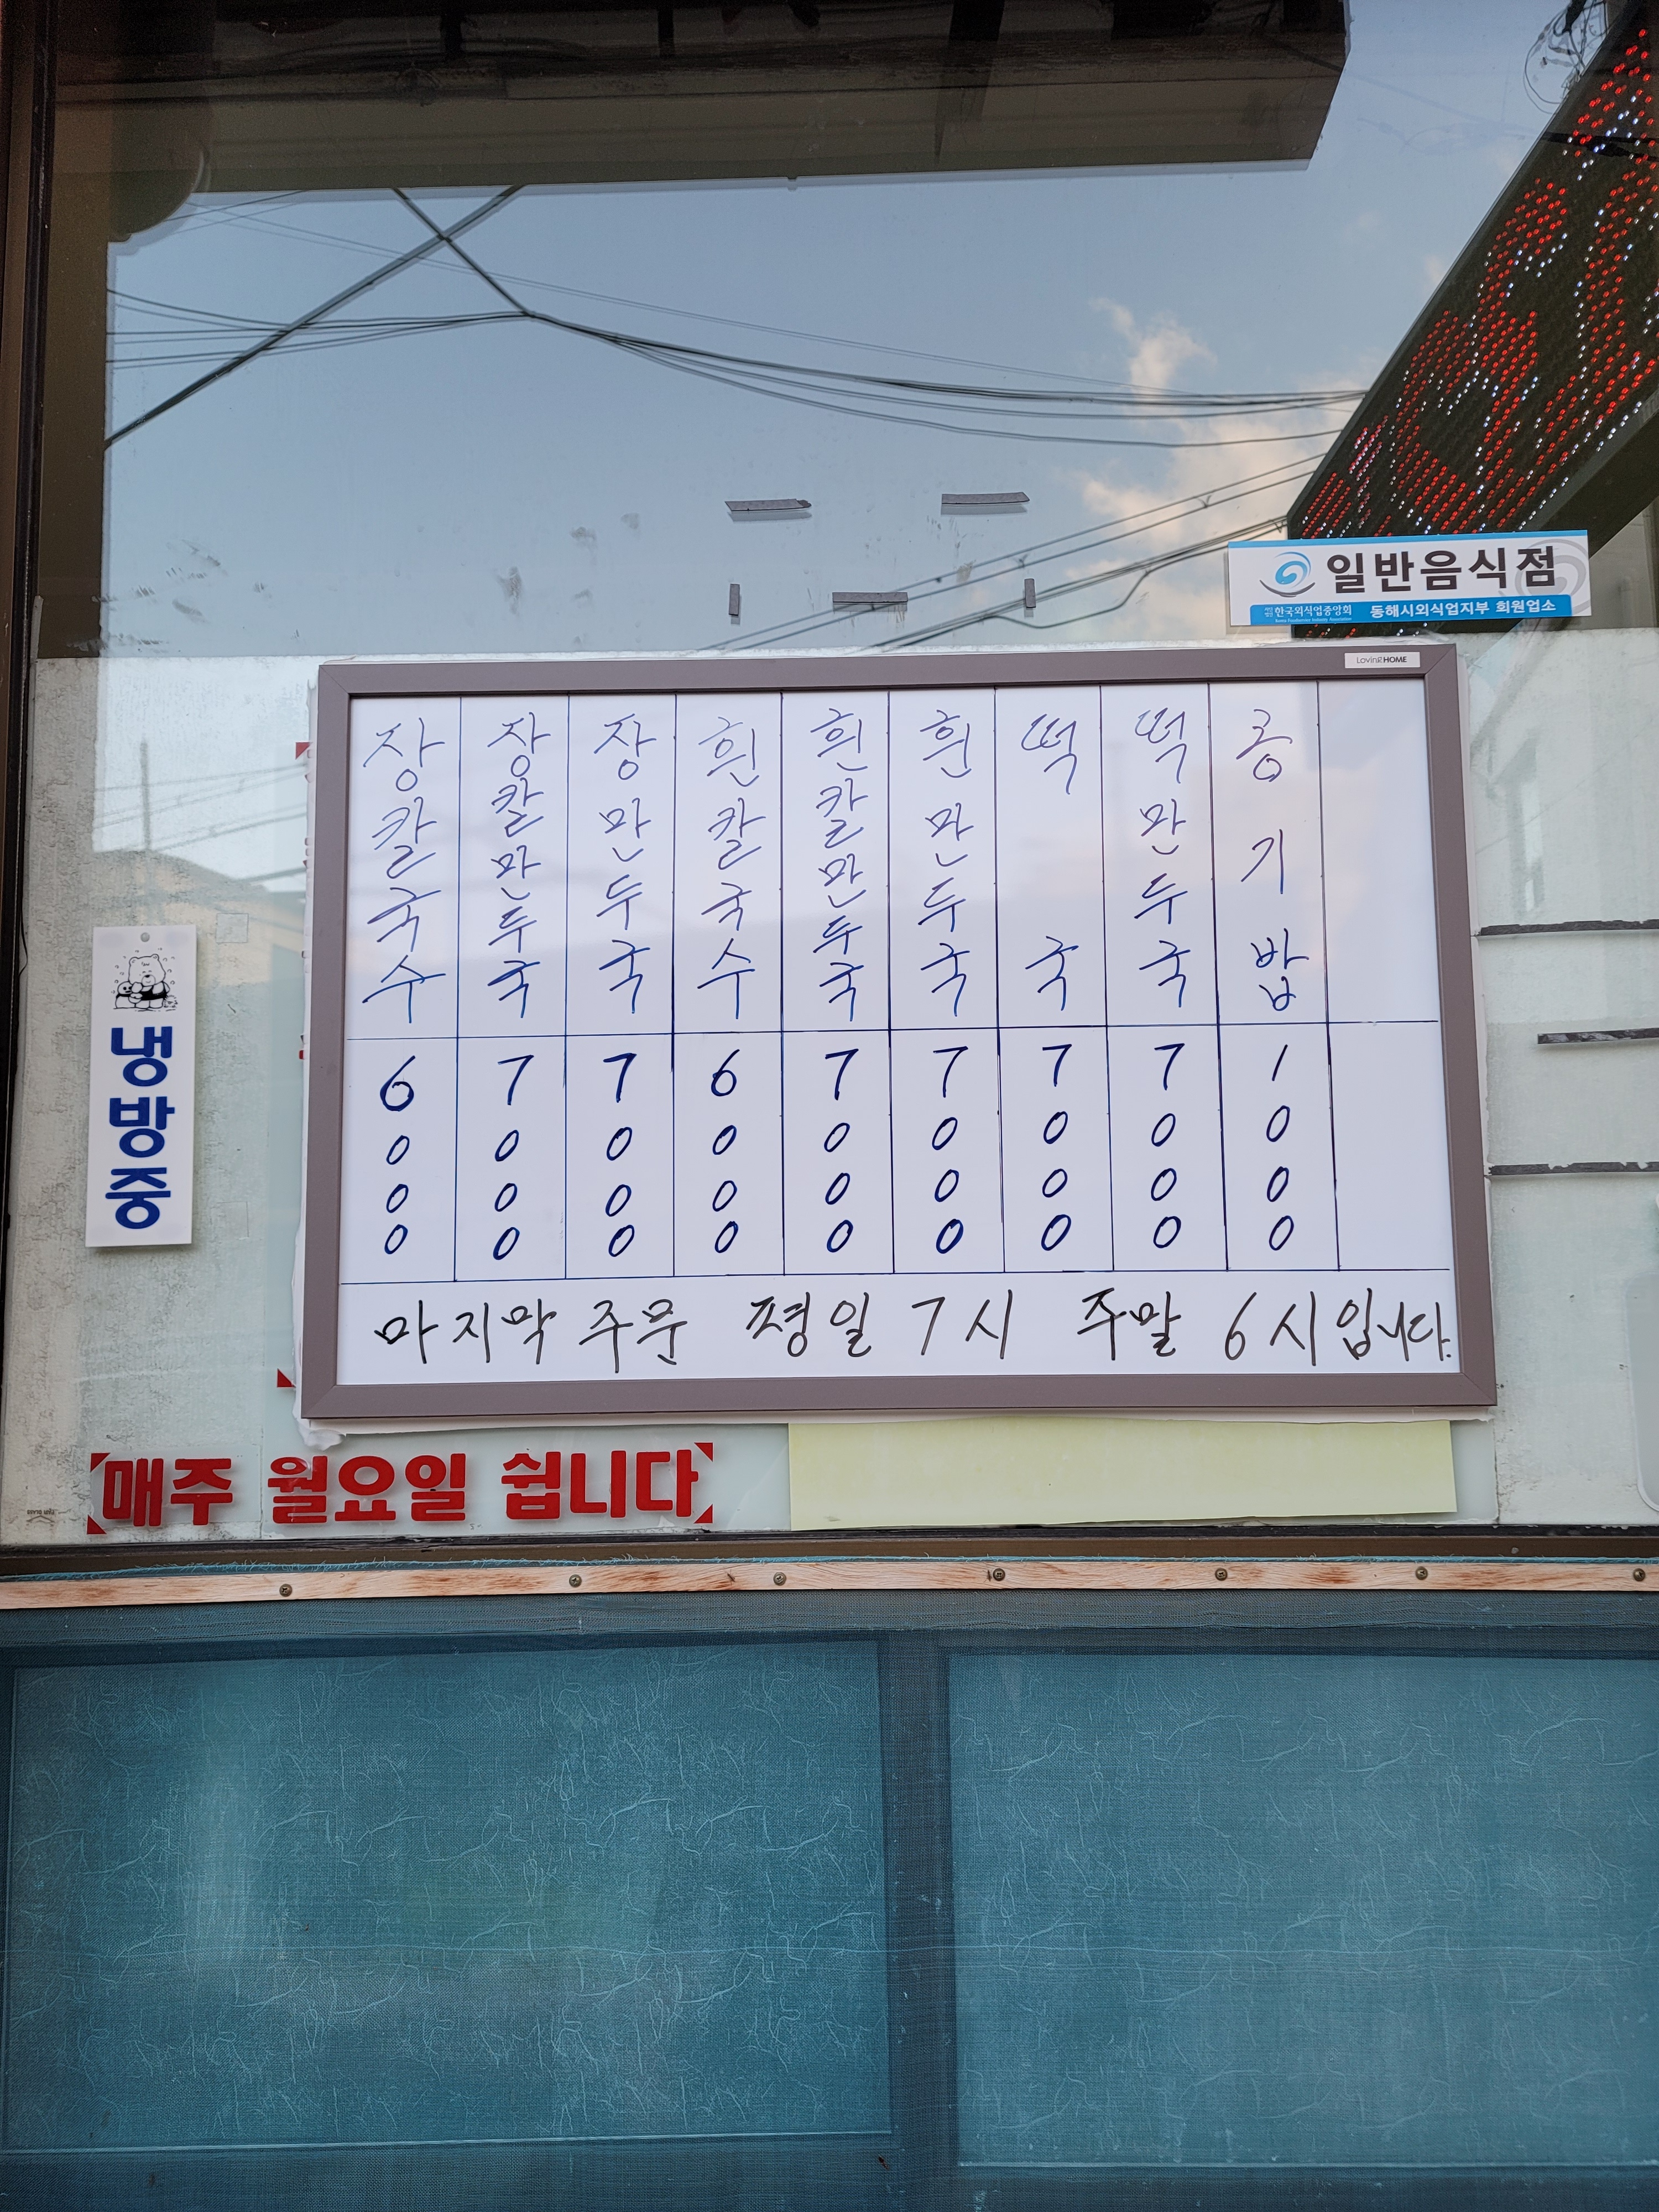 일반음식점
한국외식업중앙회 동해시외식업지부 회원업소
LovingHOME
장칼국수 6000
장칼만두국 7000
장만두국 7000
흰칼국수 6000
흰칼만두국 7000
흰만두국 7000
떡국 7000
떡만두국 7000
공기밥 1000
마지막 주문 평일 7시 주말 6시입니다.
냉방중
매주 월요일 쉽니다